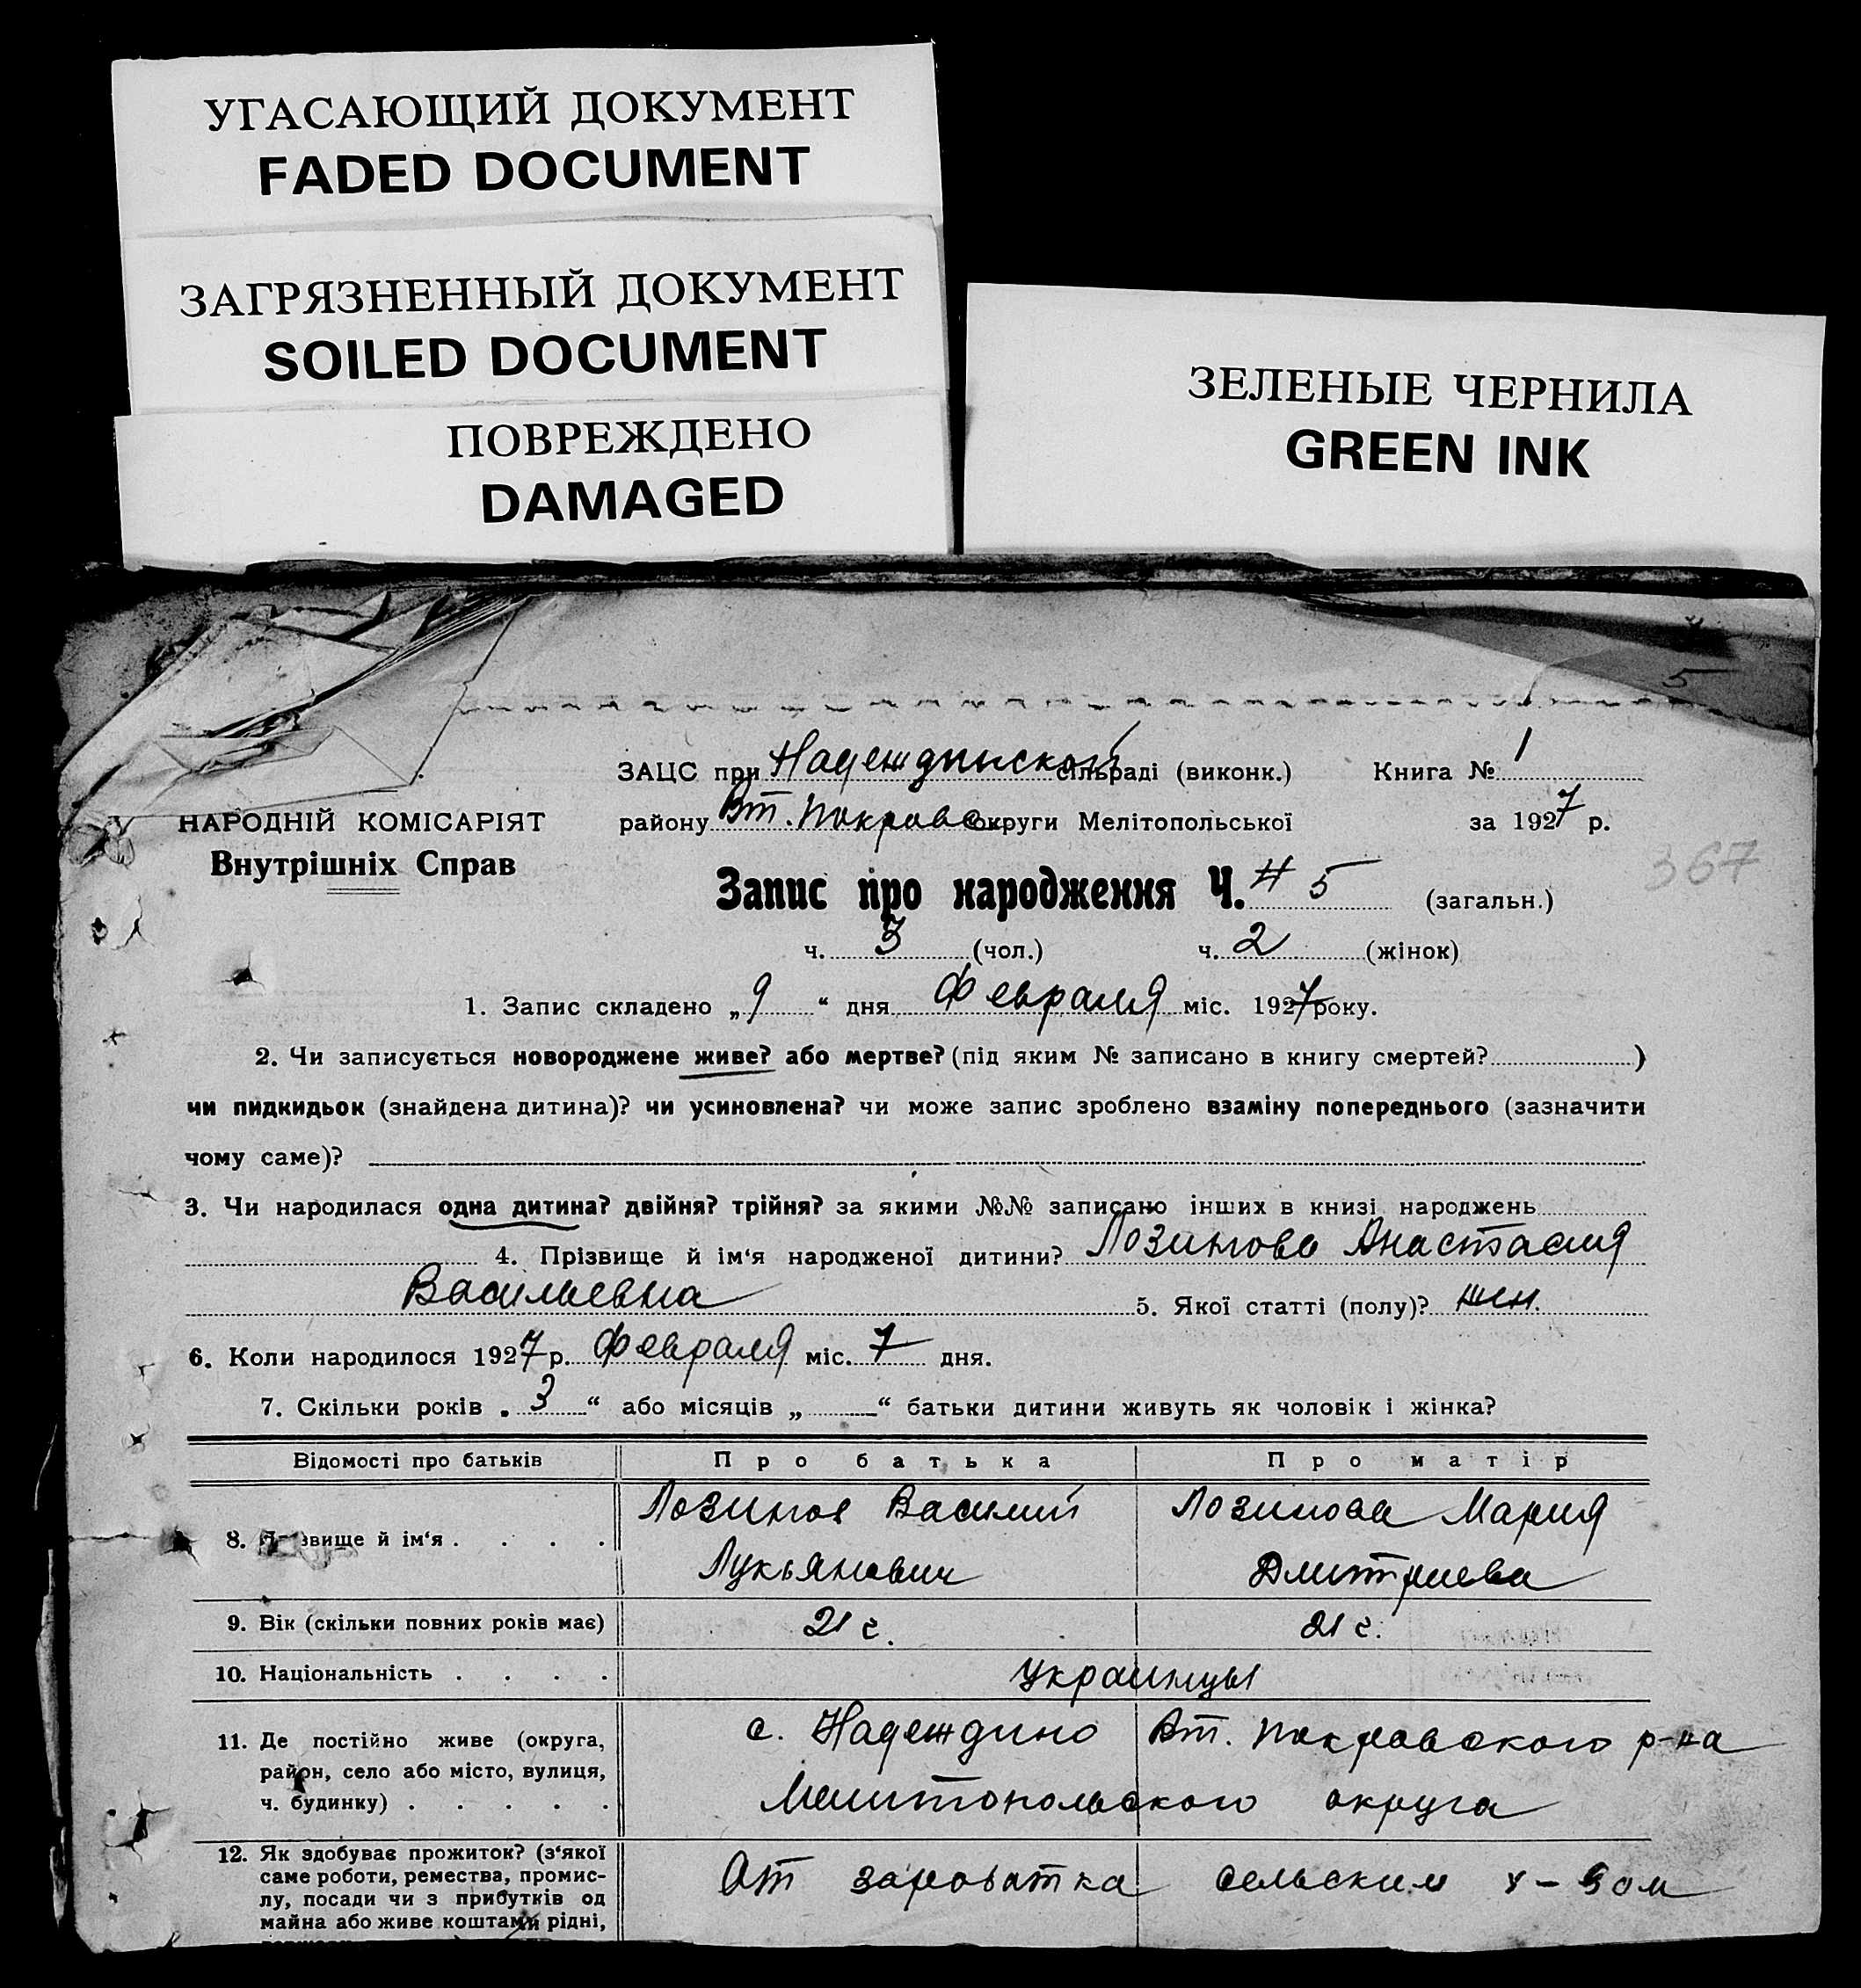 УГАСАЮЩИЙ ДОКУМЕНТ
FADED DOCUMENT
ЗАГРЯЗНЕННЫЙ ДОКУМЕНТ
SOILED DOCUMENT
ПОВРЕЖДЕНО
DAMAGED
ЗЕЛЕНЫЕ ЧЕРНИЛА
GREEN INK
5
ЗАЦС при Надеждинской сільраді (виконк.) Книга № 1
НАРОДНІЙ КОМІСАРІЯТ
Внутрішніх Справ
району Вт. Покровс. округи Мелітопольської за 1927 р.
367
Запис про народження Ч. # 5 (загальн.)
ч. 3 (чол.) ч. 2 (жінок)
1. Запис складено „ 9 “ дня Февраля міс. 1927 року.
2. Чи записується новороджене живе? або мертве? (під яким № записано в книгу смертей? )
чи пидкидьок (знайдена дитина)? чи усиновлена? чи може запис зроблено взаміну попереднього (зазначити
чому саме)?
3. Чи народилася одна дитина? двійня? трійня? за якими №№ записано інших в книзі народжень
4. Прізвище й ім‘я народженої дитини? Лозингова Анастасия
Васильевна 5. Якої статті (полу)? жен.
6. Коли народилося 1927 р. Февраля міс. 7 дня.
7. Скільки років „ 3 “ або місяців „ “ батьки дитини живуть як чоловік і жінка?
Відомості про батьків Про батька Про матір
8. Прізвище й ім‘я . . . . Василий Мария
Лукьянович Дмитриева
9. Вік (скільки повних років має) 21 г. 21 г.
10. Національність . . . . Украинцы
11. Де постійно живе (округа, район, село або місто, вулиця, ч. будинку) . . . . . с. Надеждино Вт. Покровского р-на
Мелитопольского округа
12. Як здобуває прожиток? (з‘якої
саме роботи, ремества, промис-
лу, посади чи з прибутків од
майна або живе коштами рідні,
От заработка сельским х-вом